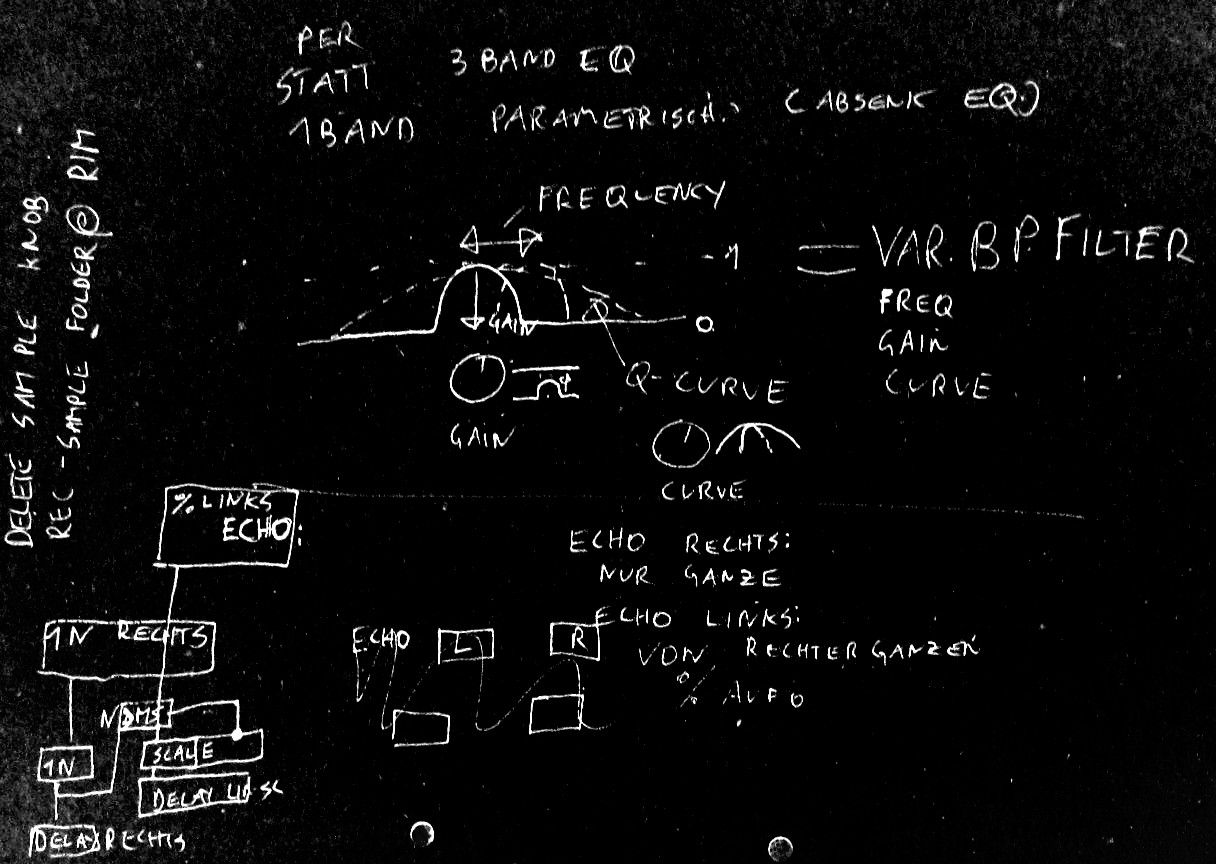 PER
STATT 3 BAND EQ
1BAND PARAMETRISCH. (ABSENK EQ.)
DELETE SAMPLE KNOB
REC-SAMPLE FOLDER@ RIM
FREQUENCY
-1
= VAR. BP. FILTER
FREQ
GAIN
CURVE
GAIN
0
Q-CURVE
GAIN
CURVE
% LINKS
ECHO:
ECHO RECHTS:
NUR GANZE
ECHO LINKS:
VON RECHTER GANZEN
% AUF 0
1N RECHTS
ECHO L R
SCALE
1N
DELAY
DELAY RECHTS